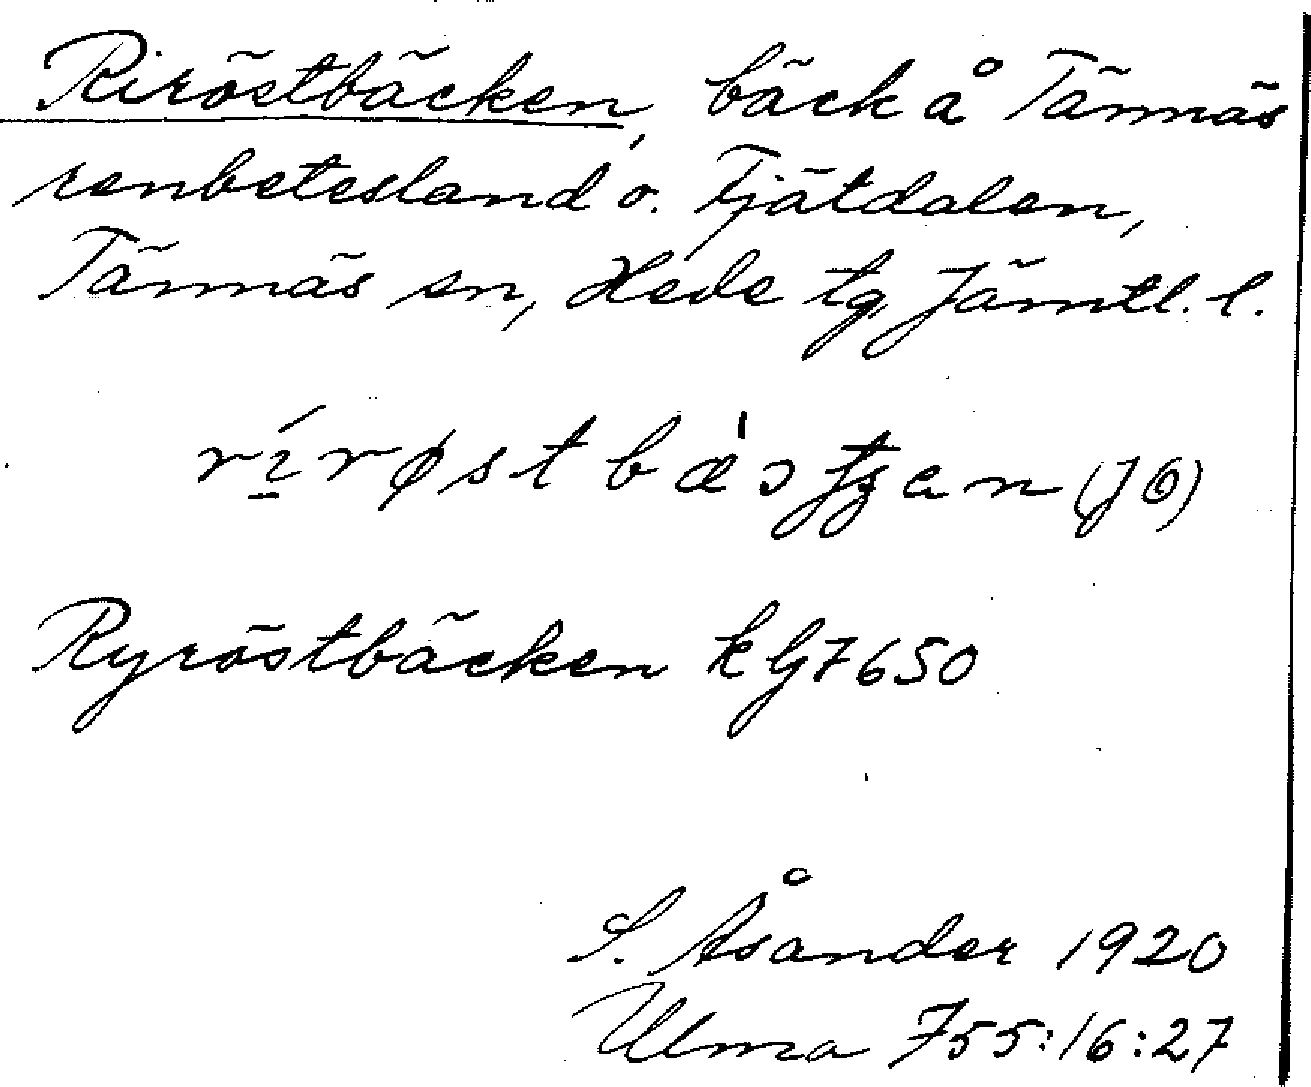 Riröstbäcken, bäck å Tännäs
renbetesland o. Tjätdalen,
Tännäs sn, Hede tg Jämtl. l.
Ryröstbäcken k G 7650
S. Åsander 1920
Ulma 755:16:27